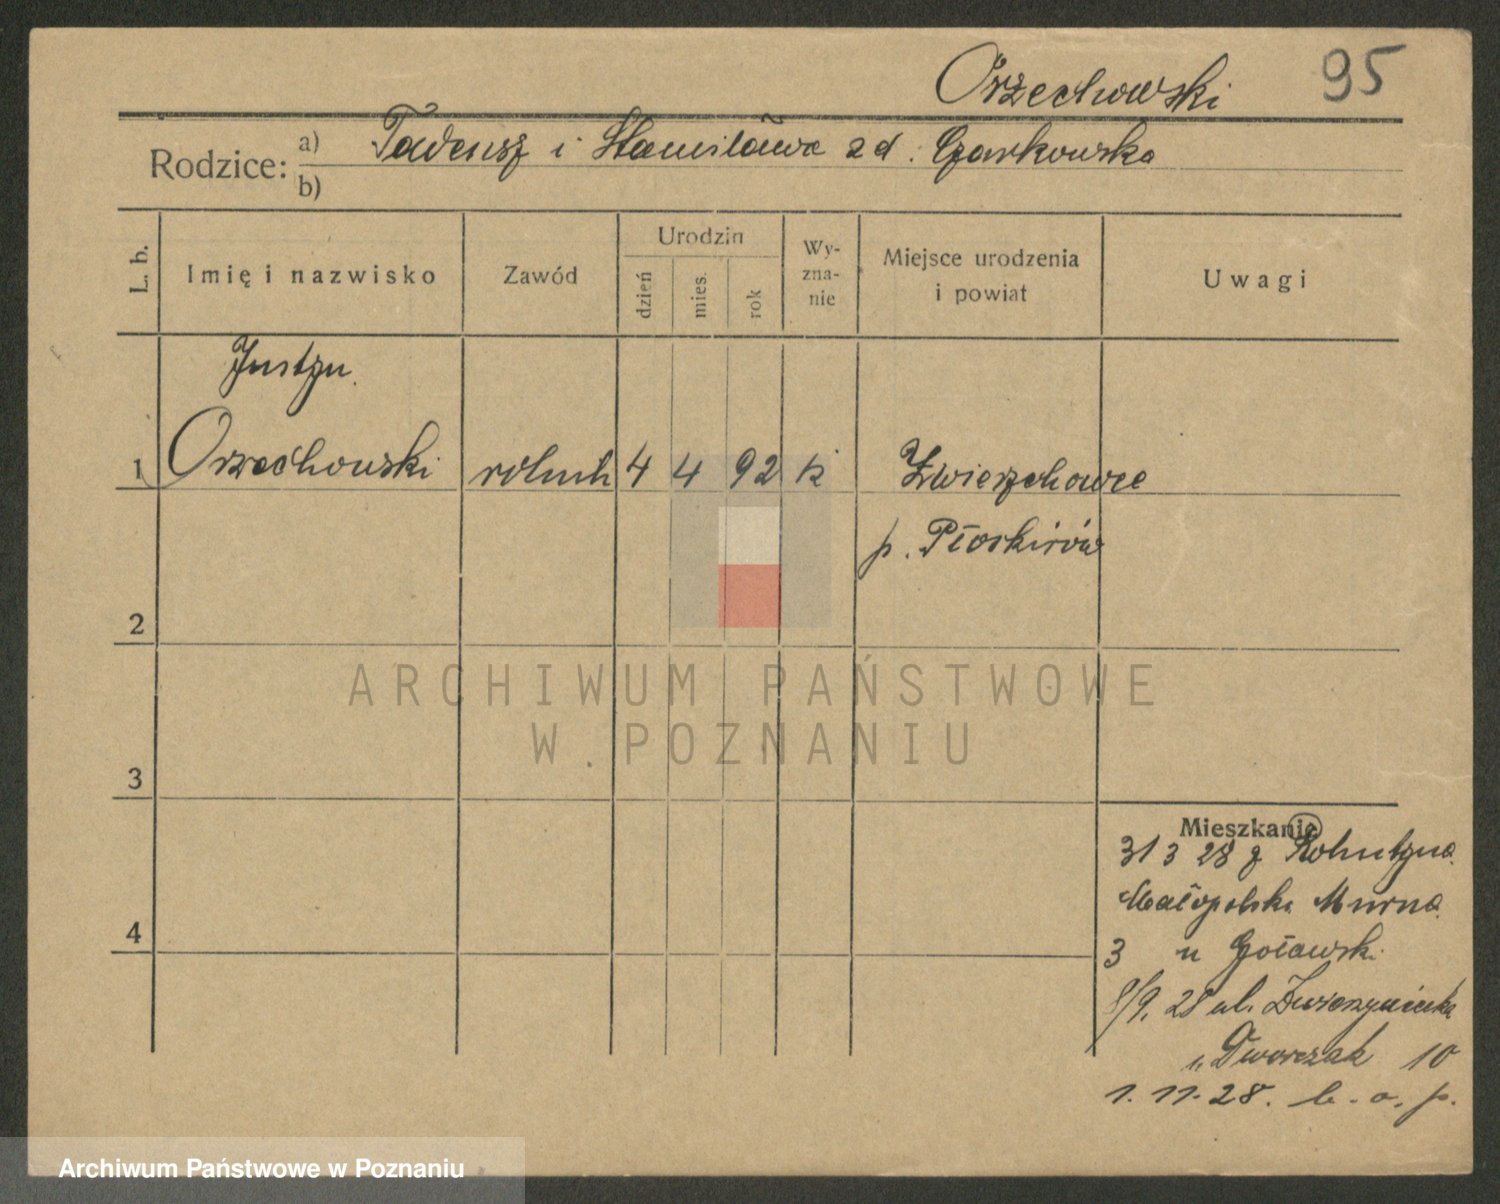 Orzechowski 95
Rodzice: a) Tadeusz i Stanisława z d. Czarkowska
b)
L. b. Imię i nazwisko Zawód Urodzin dzień mies. rok Wyznanie Miejsce urodzenia i powiat Uwagi
Justyn
1 Orzechowski rolnik 4 4 92 k Zwierzchowce
p. Płoskirów
2
ARCHIWUM PAŃSTWOWE
W POZNANIU
3
Mieszkanie
31 3 28 z
Małopolski Murna
4
3 u Goławski
8/9. 28 ul. Zwierzyniecka
u Dworczak 10
1. 11. 28. b. o. p.
Archiwum Państwowe w Poznaniu